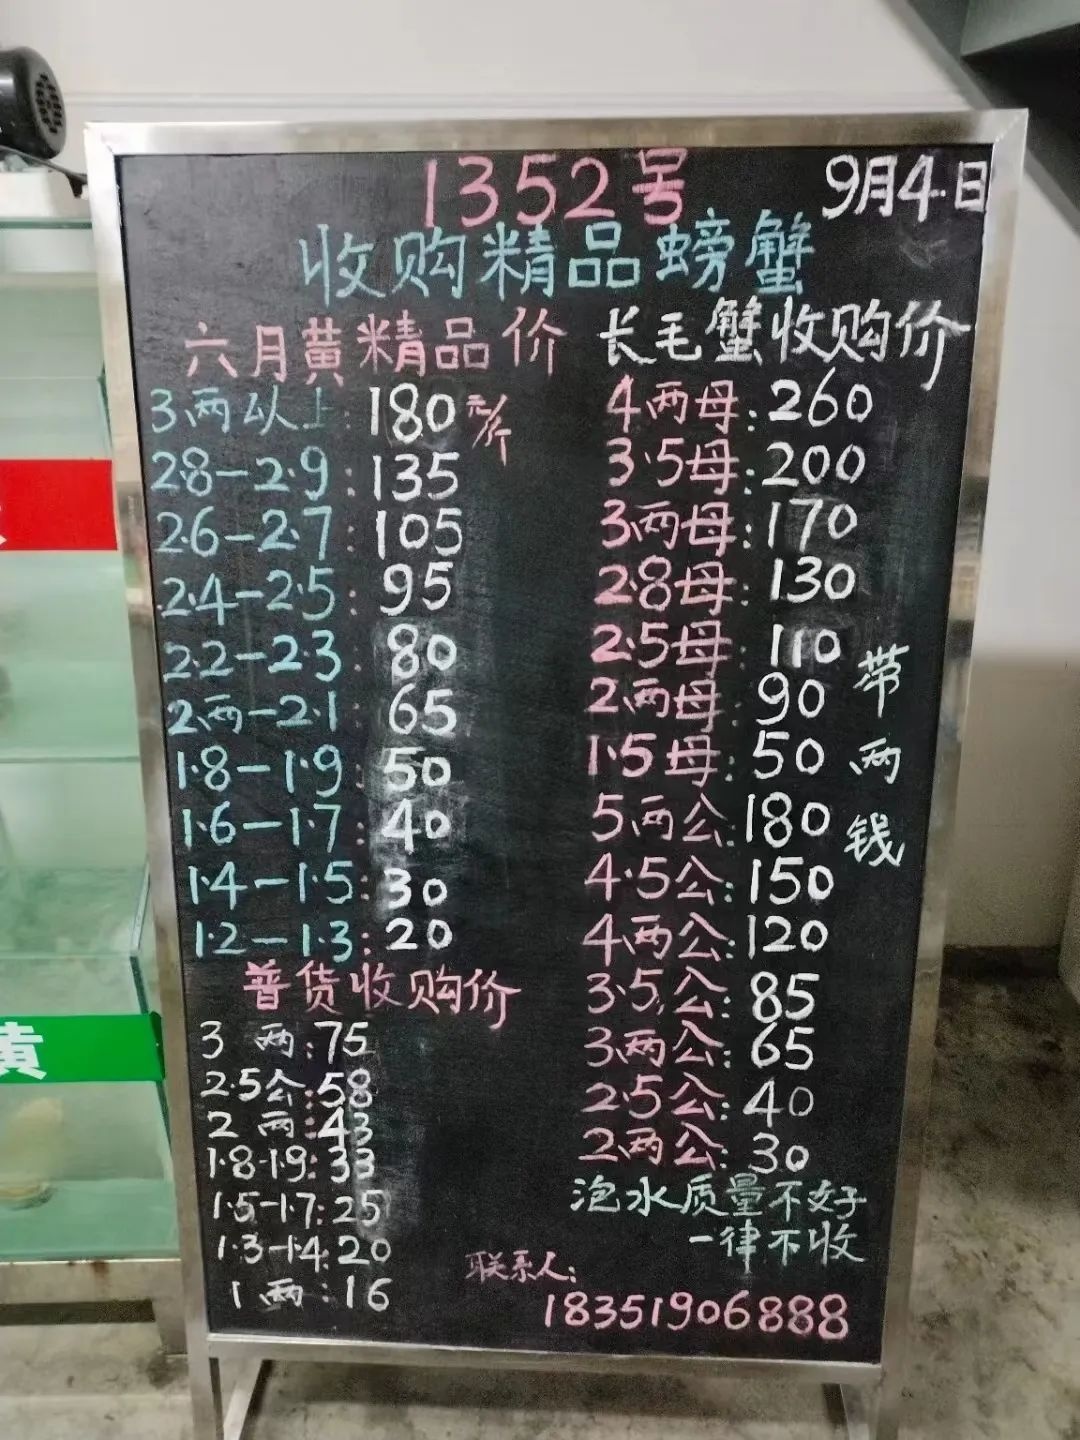 1352号
9月4日
收购精品螃蟹
六月黄精品价
3两以上:180元/斤
28-2.9:135
26-2.7:105
2.4-2.5:95
2.2-2.3:80
2两-2.1:65
1.8-1.9:50
1.6-1.7:40
1.4-1.5:30
1.2-1.3:20
普货收购价
3两:75
2.5公:58
2两:43
1.8-1.9:33
1.5-1.7:25
1.3-1.4:20
1两:16
长毛蟹收购价
4两母:260
3.5母:200
3两母:170
2.8母:130
2.5母:110
2两母:90
1.5母:50
5两公:180
4.5公:150
4两公:120
3.5公:85
3两公:65
2.5公:40
2两公:30
带两钱
泡水质量不好
一律不收
联系人:
18351906888
黄